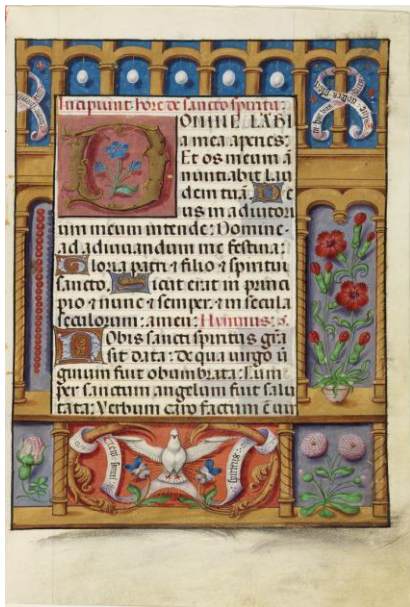 Incipiunt hore de sancto spiritu:
DOmine labi
a mea aperies:
Et os meum ā
nuntiabit lau
dem tuā: De
us in adiutori
um meum intende: Domine
ad adiuuandum me festina:
Gloria patri ⁊ filio ⁊ spiritui
sancto. Sicut erat in princi
pio ⁊ nunc ⁊ semper: ⁊ in secula
seculorum: amen:
NObis sancti spiritus gr̄a
sit data: De qua uirgo ū
ginum fuit obumbrata: Cum
per sanctum angelum fuit salu
tata: Verbum caro factum ē